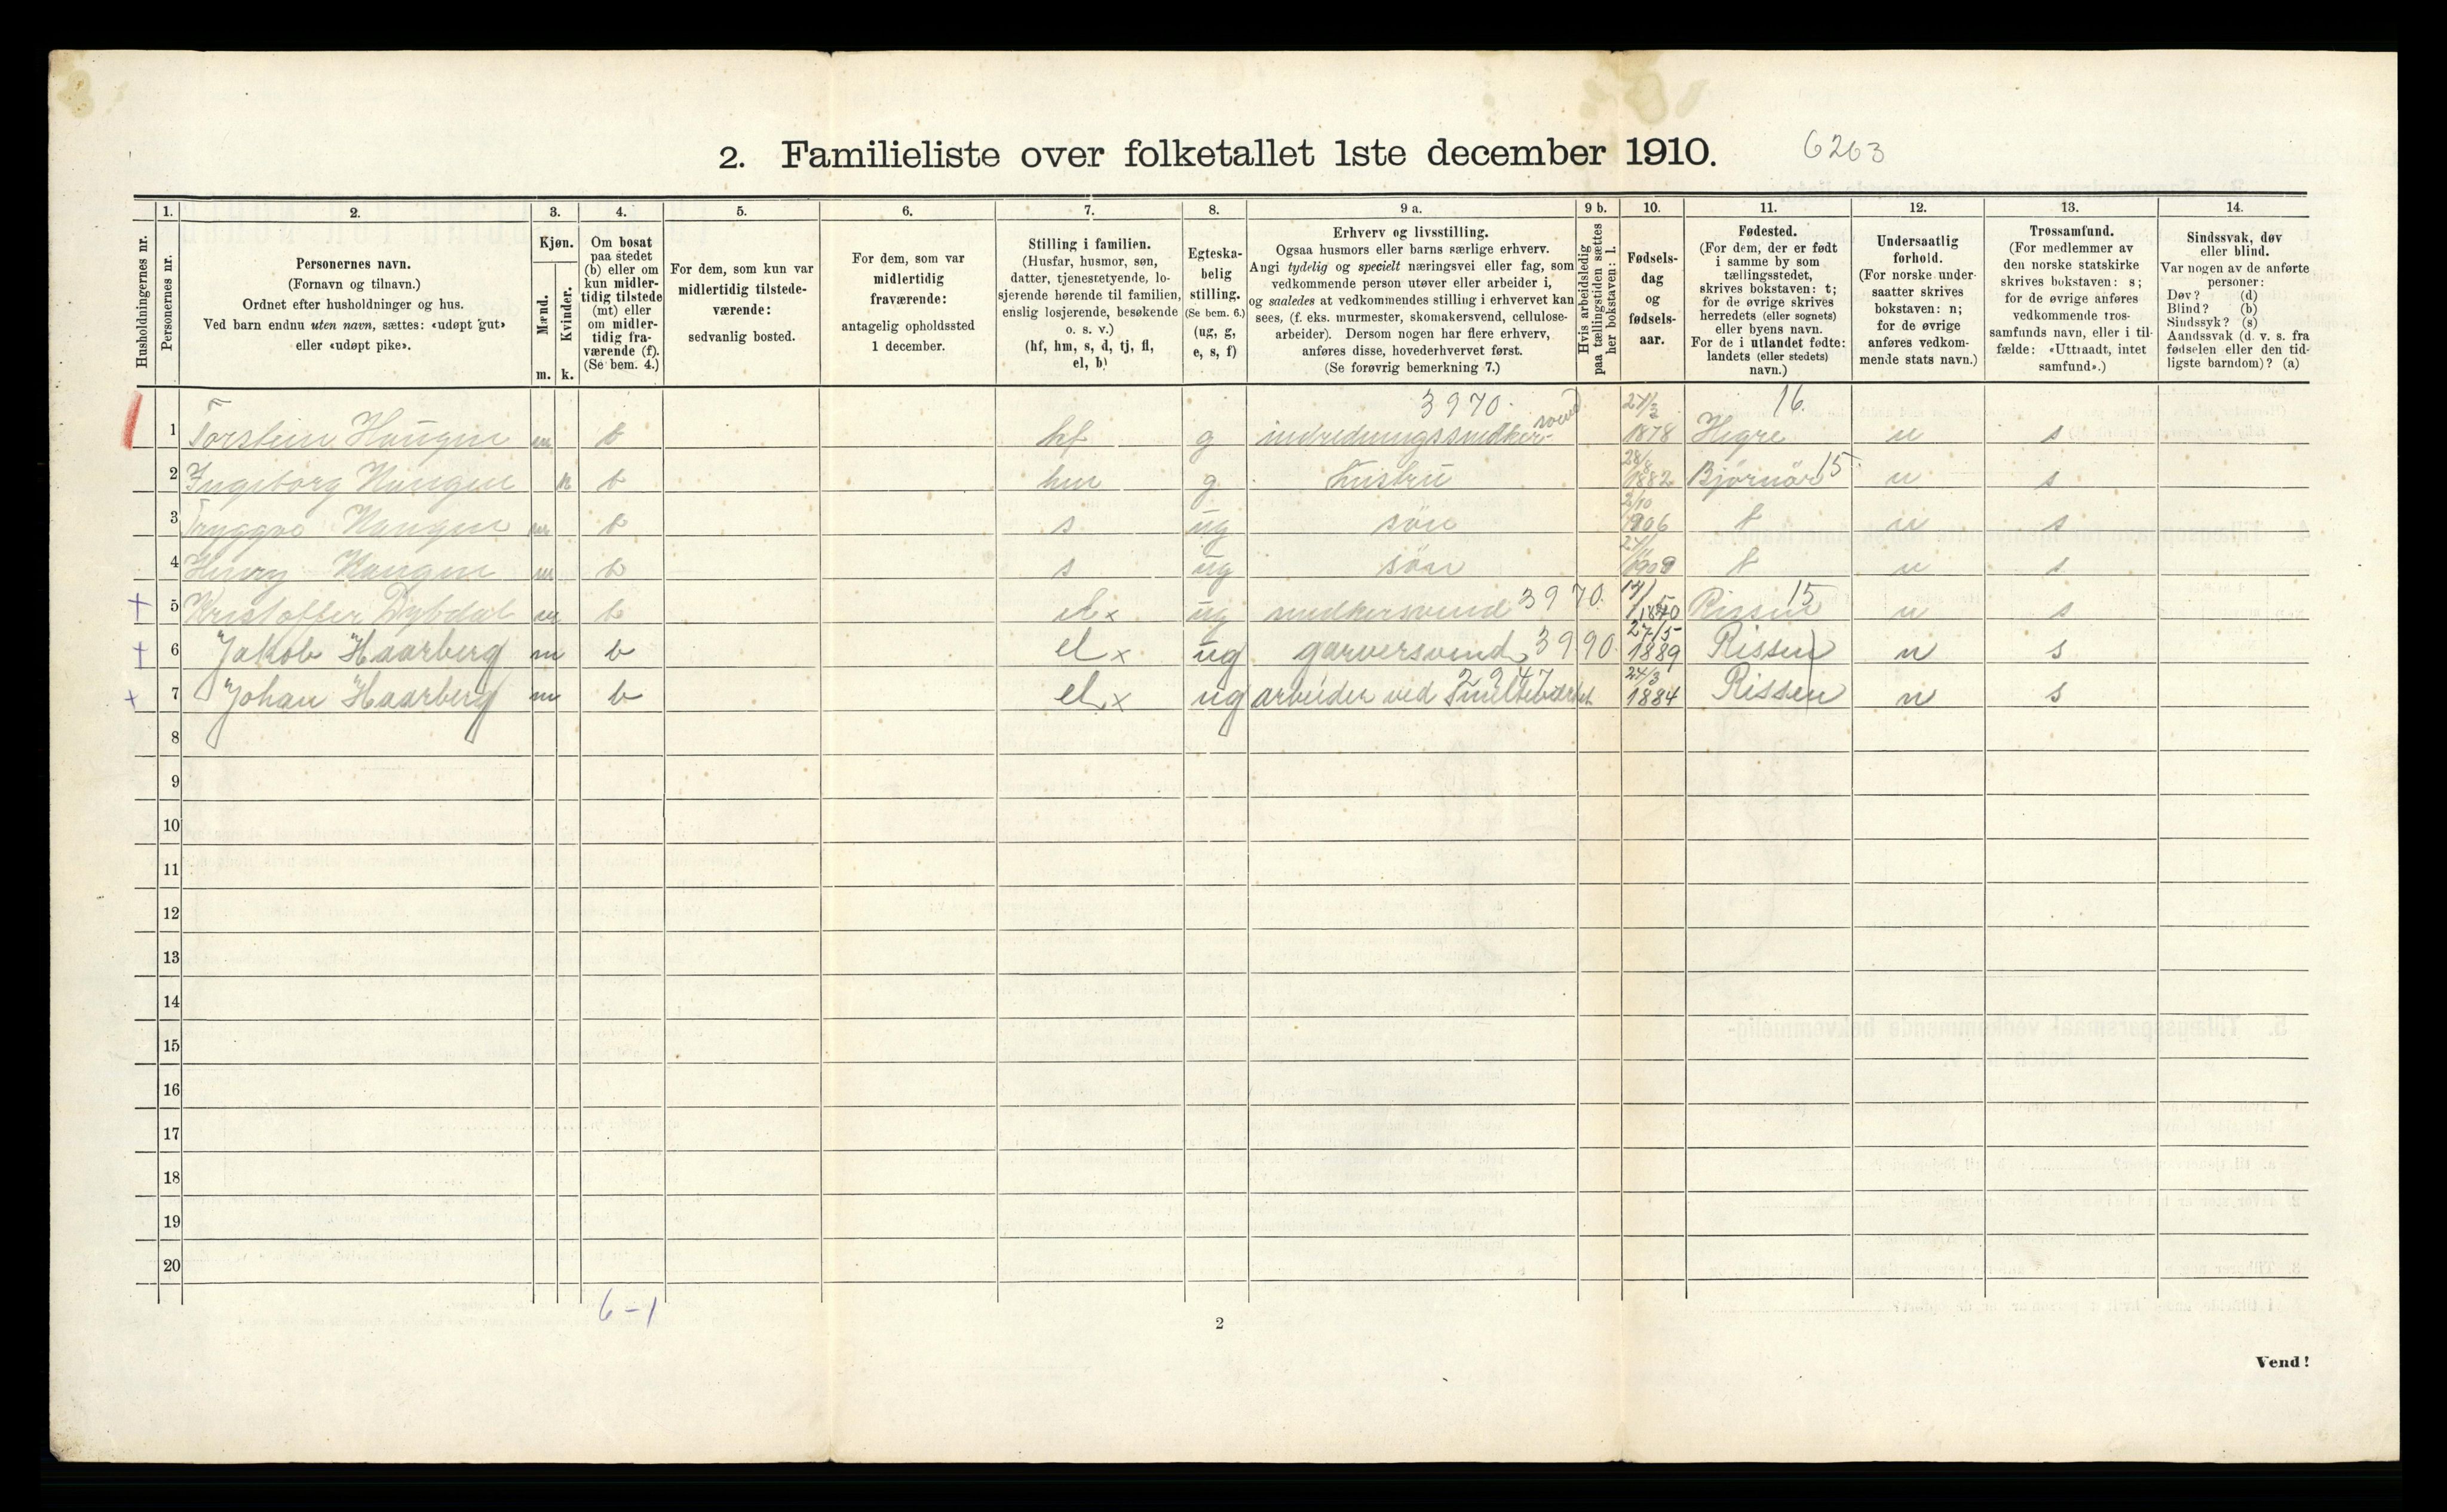 2. Familieliste over folketallet 1ste december 1910.
6263
Husholdningernes nr.
1.
Personernes nr.
2.
Personernes navn.
(Fornavn og tilnavn.)
Ordnet efter husholdninger og hus.
Ved barn endnu uten navn, sættes: «udøpt gut»
eller «udøpt pike».
3.
Kjøn.
Mænd.
Kvinder.
m. k.
4.
Om bosat
paa stedet
(b) eller om
kun midler-
tidig tilstede
(mt) eller
om midler-
tidig fra-
værende (f).
(Se bem. 4.)
5.
For dem, som kun var
midlertidig tilstede-
værende:
sedvanlig bosted.
6.
For dem, som var
midlertidig
fraværende:
antagelig opholdssted
1 december.
7.
Stilling i familien.
(Husfar, husmor, søn,
datter, tjenestetyende, lo-
sjerende hørende til familien,
enslig losjerende, besøkende
o. s. v.)
(hf, hm, s, d, tj, fl,
el, b)
8.
Egteska-
belig
stilling.
(Se bem. 6.)
(ug, g,
e, s, f)
9 a.
Erhverv og livsstilling.
Ogsaa husmors eller barns særlige erhverv.
Angi tydelig og specielt næringsvei eller fag, som
vedkommende person utøver eller arbeider i,
og saaledes at vedkommendes stilling i erhvervet kan
sees, (f. eks. murmester, skomakersvend, cellulose-
arbeider). Dersom nogen har flere erhverv,
anføres disse, hovederhvervet først.
(Se forøvrig bemerkning 7.)
9 b.
Hvis arbeidsledig
paa tællingstiden sættes
her bokstaven: l.
10.
Fødsels-
dag
og
fødsels-
aar.
11.
Fødested.
(For dem, der er født
i samme by som
tællingsstedet,
skrives bokstaven: t;
for de øvrige skrives
herredets (eller sognets)
eller byens navn.
For de i utlandet fødte:
landets (eller stedets)
navn.)
12.
Undersaatlig
forhold.
(For norske under-
saatter skrives
bokstaven: n;
for de øvrige
anføres vedkom-
mende stats navn.)
13.
Trossamfund.
(For medlemmer av
den norske statskirke
skrives bokstaven: s;
for de øvrige anføres
vedkommende tros-
samfunds navn, eller i til-
fælde: «Uttraadt, intet
samfund».)
14.
Sindssvak, døv
eller blind.
Var nogen av de anførte
personer:
Døv? (d)
Blind? (b)
Sindssyk? (s)
Aandssvak (d. v. s. fra
fødselen eller den tid-
ligste barndom)? (a)
3970. 16.
1 Torstein Haugen m b hf g indredningssnedker-svend 1878 Hegre n s
2 Ingeborg Haugen k b hm g Hustru 28/8 1882 Bjørnör 15 n s
3 Tryggve Haugen m b s ug sön 2/10 1906 t n s
4 Henry Haugen m b s ug sön 1909 t n s
5 Kristoffer Dybdal m b el x ug snedkersvend 3970. Rissen 15 n s
6 Jakob Haarberg m b el x ug garversvend 3990. 27/5 1889 Rissen n s
7 Johan Haarberg m b el x ug arbeider ved Smelteverket 2947 24/3 1884 Rissen n s
8
9
10
11
12
13
14
15
16
17
18
19
20
6-1
2
Vend!